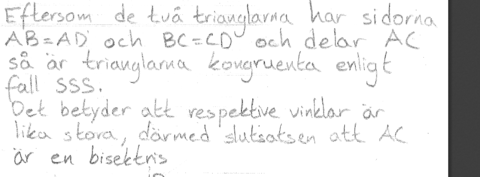 Eftersom de två trianglarna har sidorna
AB=AD och BC=CD och delar AC
så är trianglarna kongruenta enligt
fall SSS.
Det betyder att respektive vinklar är
lika stora, därmed slutsatsen att AC
är en bisektris